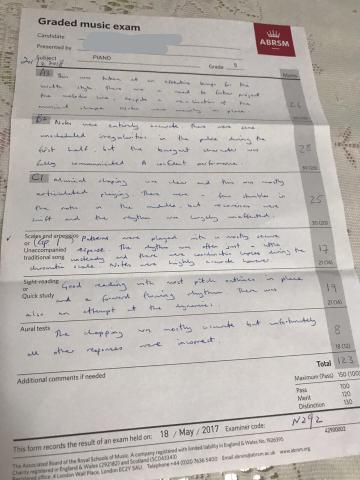 Graded music exam
ABRSM
Candidate
Presented by
Subject PIANO Grade 5
Marks
A3 This was taken at an effective tempo for the
waltz style. There was a need to further project
the melodic line, despite a realisation of the
musical shape. Notes were mostly in place. 26
30 (20)
B2 Notes were entirely accurate. There were some
unscheduled irregularities in the pulse during the
first half, but the buoyant character was
fully communicated. A confident performance. 28
30 (20)
C1 Musical shaping was clear and this was mostly
articulated playing. There were a few stumbles in
the notes in the middle, but recoveries were
swift and the rhythm was largely unaffected. 25
30 (20)
Scales and arpeggios
or
Unaccompanied
traditional song
Patterns were played with a mostly secure
response. The rhythm was often just a little
unsteady and there were coordination lapses during the
chromatic scale. Notes were largely accurate however. 17
21 (14)
Sight-reading
or
Quick study
Good reading with most pitch outlines in place
and a forward flowing rhythm. There was
also an attempt at the dynamics. 19
21 (14)
Aural tests The clapping was mostly accurate but unfortunately
all other responses were incorrect. 8
18 (12)
Additional comments if needed
Total 123
Maximum (Pass) 150 (100)
Pass 100
Merit 120
Distinction 130
This form records the result of an exam held on: 18 / May / 2017 Examiner code: N292
42900802
The Associated Board of the Royal Schools of Music. A company registered with limited liability in England & Wales No. 1926395
Charity registered in England & Wales (292182) and Scotland (SC043343)
Registered office: 4 London Wall Place, London EC2Y 5AU Telephone +44 (0)20 7636 5400 Email abrsm@abrsm.ac.uk www.abrsm.org